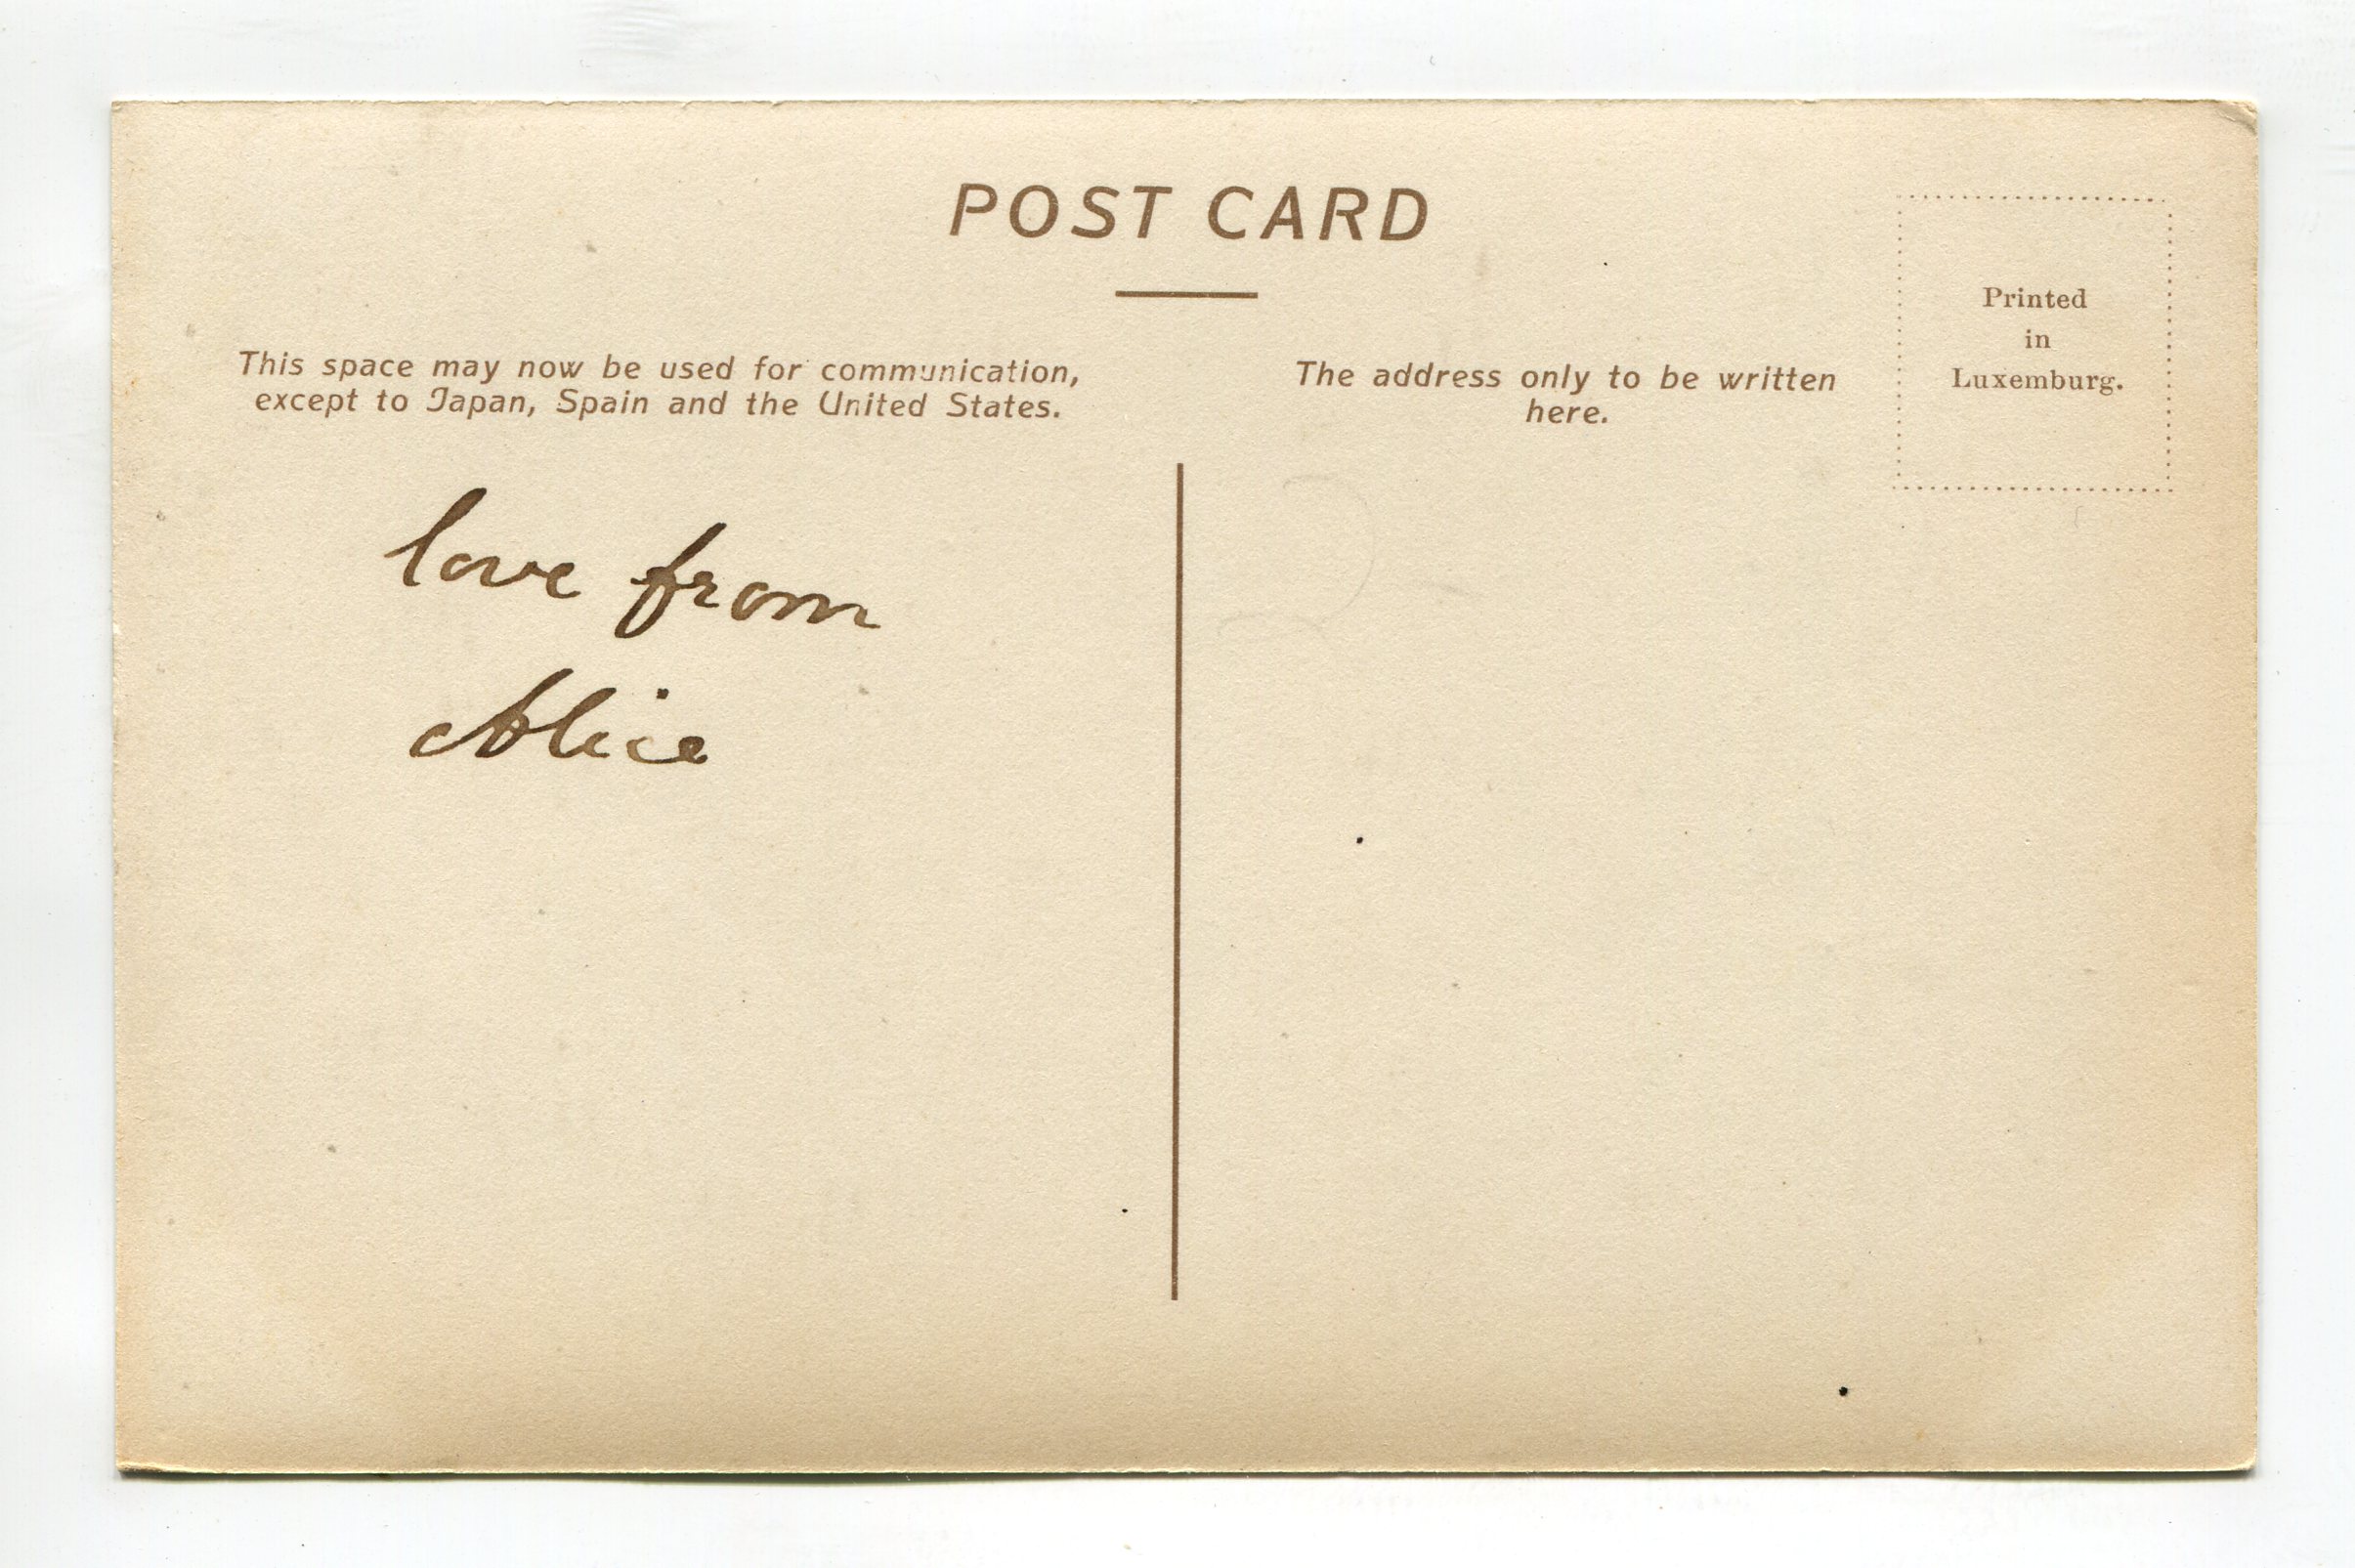 POST CARD
This space may now be used for communication,
except to Japan, Spain and the United States.
The address only to be written
here.
Printed
in
Luxemburg.
love from
Alice